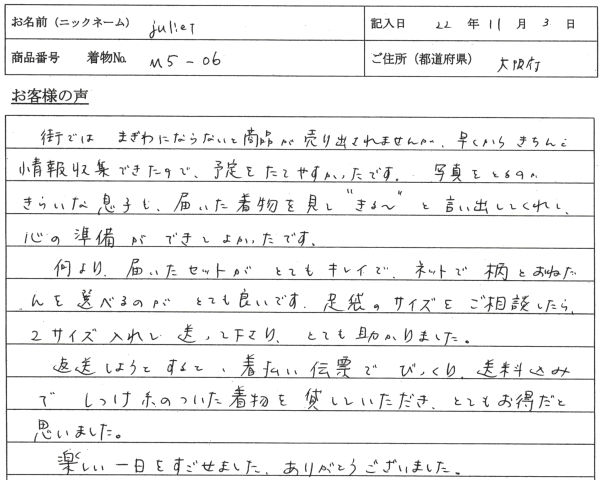 お名前（ニックネーム） juliet 記入日 22 年 11 月 3 日
商品番号 着物No. M5-06 ご住所（都道府県） 大阪府
お客様の声
街では まぎわにならないと商品が売り出されませんが、早くからきちんと
情報収集できたので、予定をたてやすかったです。 写真をとるのが
きらいな息子も、届いた着物を見て"きる〜"と言い出してくれて、
心の準備ができてよかったです。
何より、届いたセットがとてもキレイで、ネットで柄とおねだ
んを選べるのがとても良いです。足袋のサイズをご相談したら、
2サイズ入れて送って下さり、とても助かりました。
返送しようとすると、着払い伝票でびっくり、送料込み
で しつけ糸のついた着物を貸していただき、とてもお得だと
思いました。
楽しい一日をすごせました、ありがとうございました。